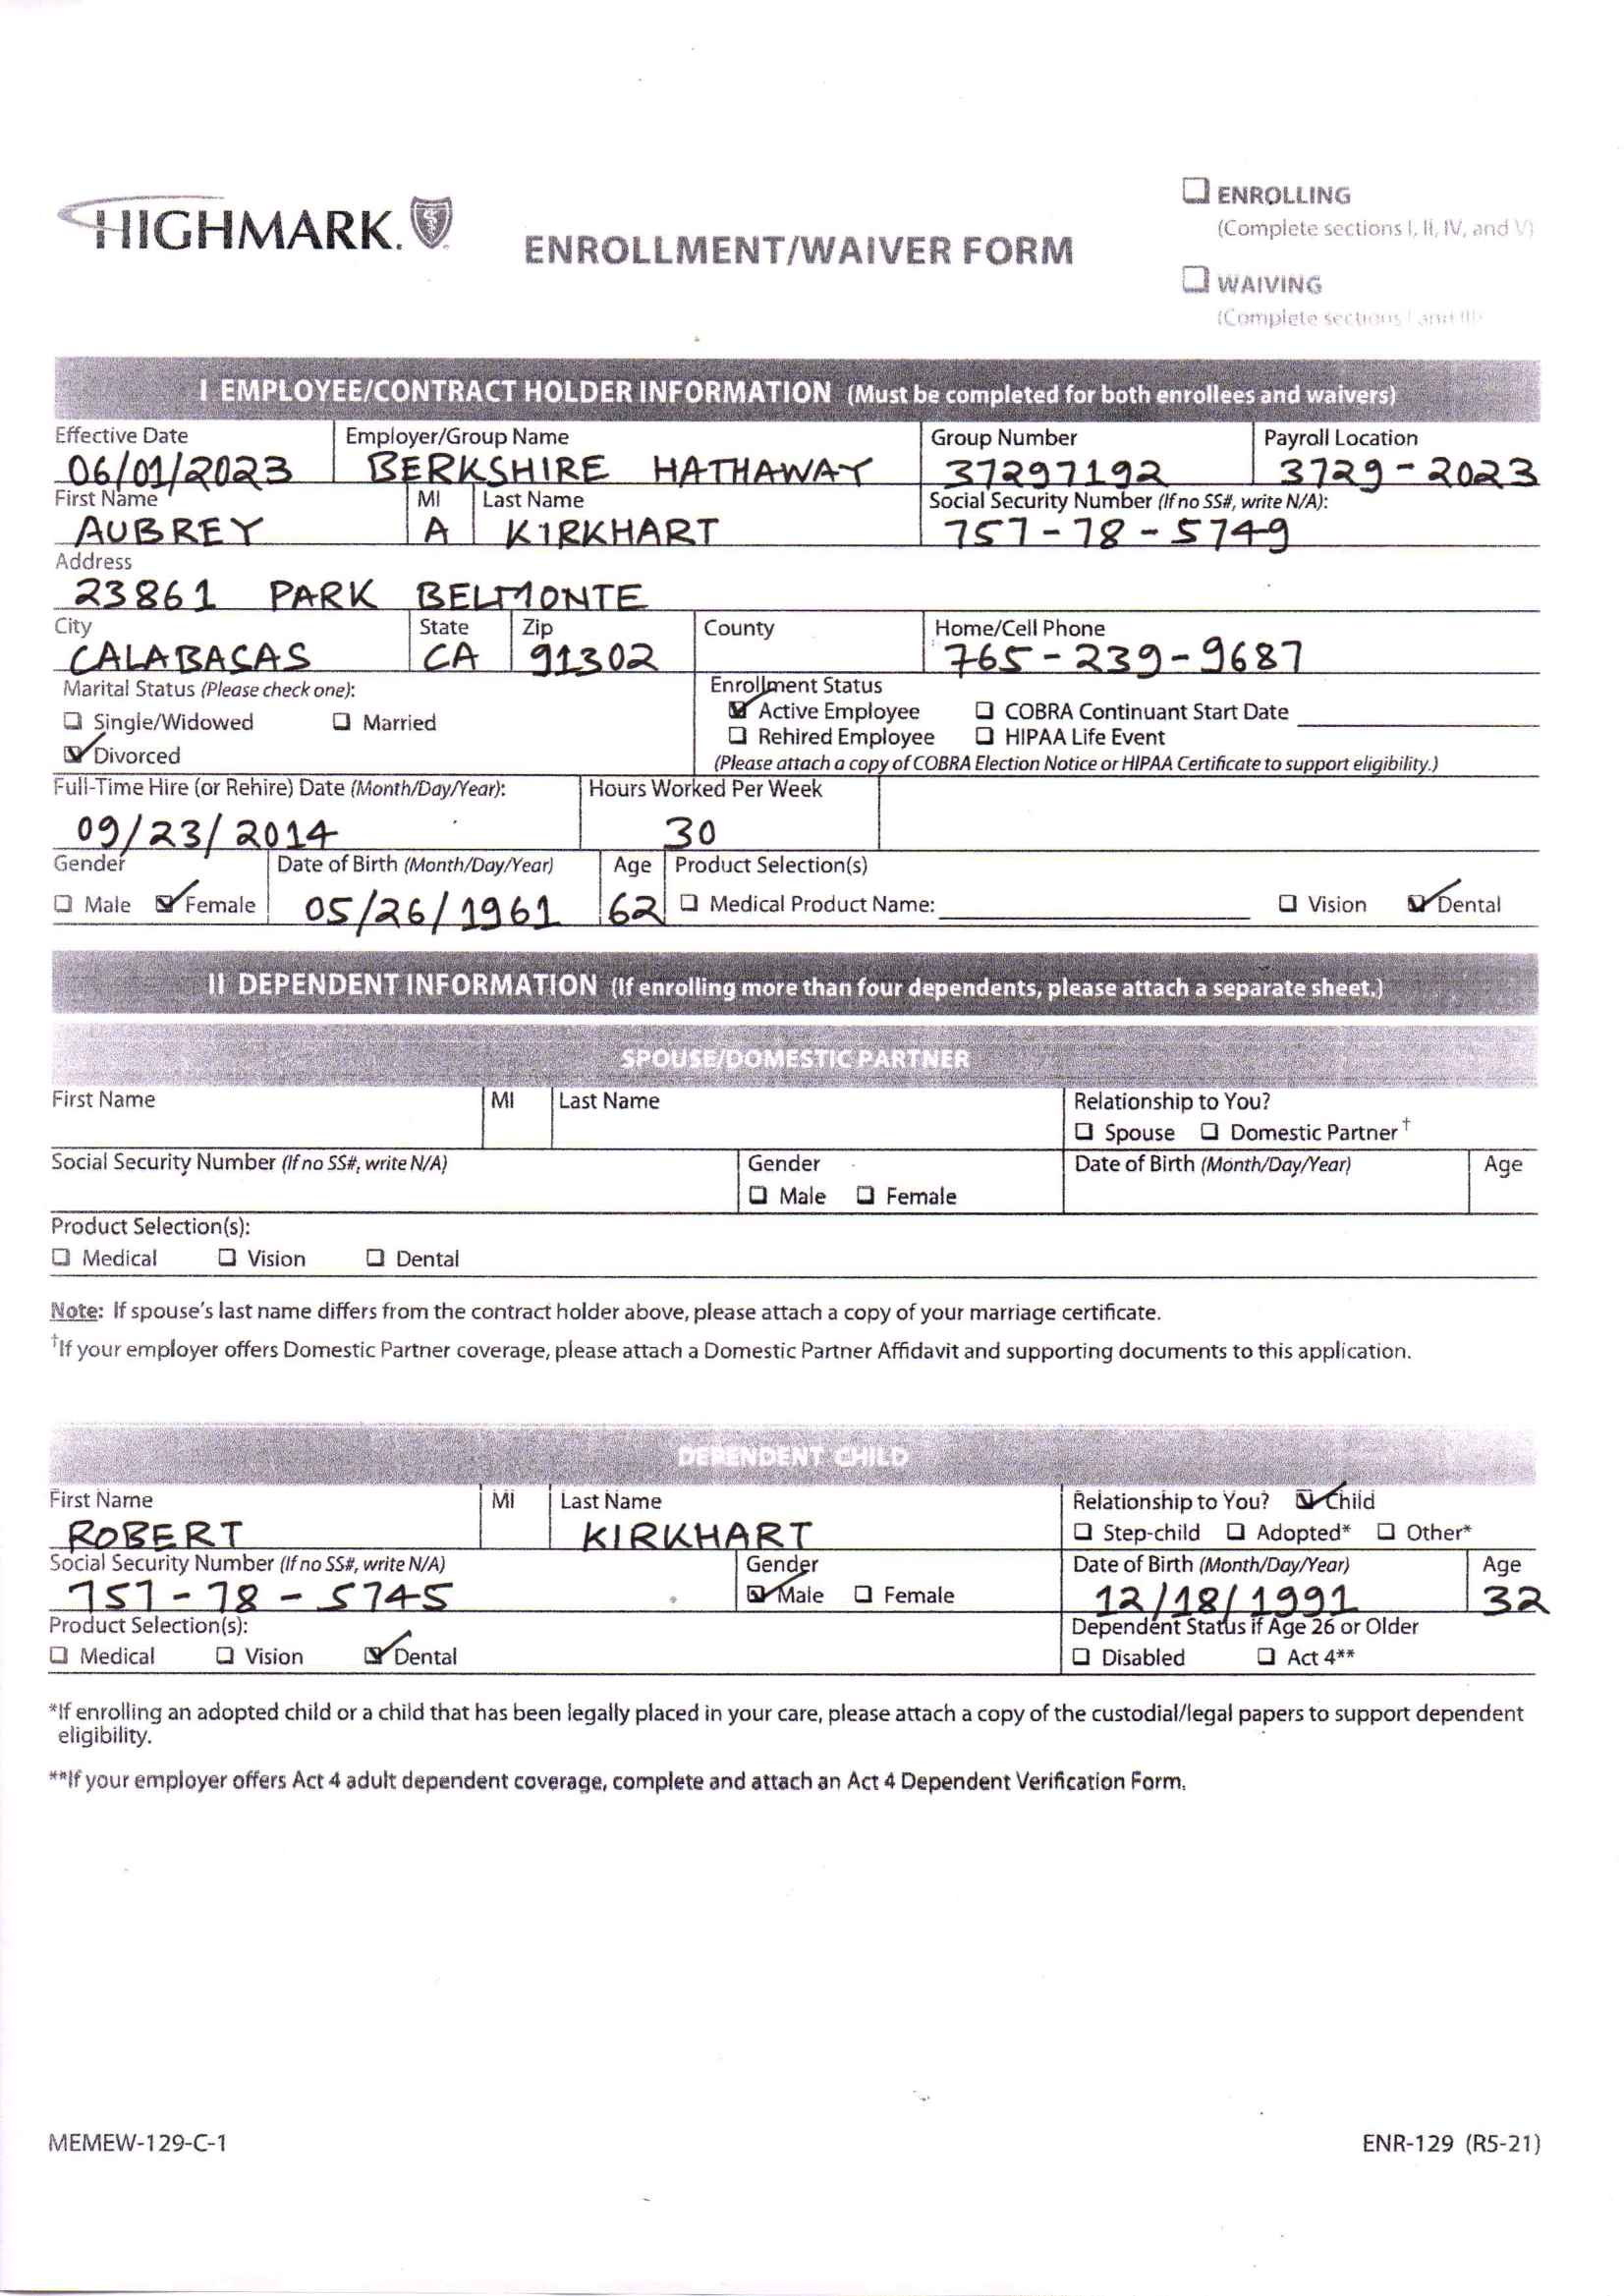 HIGHMARK.
ENROLLMENT/WAIVER FORM
❑ ENROLLING
(Complete sections I, II, IV, and V)
❑ WAIVING
(Complete sections I and III)
I EMPLOYEE/CONTRACT HOLDER INFORMATION (Must be completed for both enrollees and waivers)
Effective Date Employer/Group Name Group Number Payroll Location
06/01/2023 BERKSHIRE HATHAWAY 37297192 3729-2023
First Name MI Last Name Social Security Number (If no SS#, write N/A):
AUBREY A KIRKHART 757-78-5749
Address
23861 PARK BELMONTE
City State Zip County Home/Cell Phone
CALABASAS CA 91302 765-239-9687
Marital Status (Please check one): Enrollment Status
❑ Single/Widowed ❑ Married ☑ Active Employee ❑ COBRA Continuant Start Date
☑ Divorced ❑ Rehired Employee ❑ HIPAA Life Event
(Please attach a copy of COBRA Election Notice or HIPAA Certificate to support eligibility.)
Full-Time Hire (or Rehire) Date (Month/Day/Year): Hours Worked Per Week
09/23/2014 30
Gender Date of Birth (Month/Day/Year) Age Product Selection(s)
❑ Male ☑ Female 05/26/1961 62 ❑ Medical Product Name: ❑ Vision ☑ Dental
II DEPENDENT INFORMATION (If enrolling more than four dependents, please attach a separate sheet.)
SPOUSE/DOMESTIC PARTNER
First Name MI Last Name Relationship to You?
❑ Spouse ❑ Domestic Partner†
Social Security Number (If no SS#, write N/A) Gender Date of Birth (Month/Day/Year) Age
❑ Male ❑ Female
Product Selection(s):
❑ Medical ❑ Vision ❑ Dental
Note: If spouse's last name differs from the contract holder above, please attach a copy of your marriage certificate.
†If your employer offers Domestic Partner coverage, please attach a Domestic Partner Affidavit and supporting documents to this application.
DEPENDENT CHILD
First Name MI Last Name Relationship to You? ☑ Child
ROBERT KIRKHART ❑ Step-child ❑ Adopted* ❑ Other*
Social Security Number (If no SS#, write N/A) Gender Date of Birth (Month/Day/Year) Age
757-78-5745 ☑ Male ❑ Female 12/18/1991 32
Product Selection(s): Dependent Status if Age 26 or Older
❑ Medical ❑ Vision ☑ Dental ❑ Disabled ❑ Act 4**
*If enrolling an adopted child or a child that has been legally placed in your care, please attach a copy of the custodial/legal papers to support dependent
eligibility.
**If your employer offers Act 4 adult dependent coverage, complete and attach an Act 4 Dependent Verification Form.
MEMEW-129-C-1 ENR-129 (R5-21)